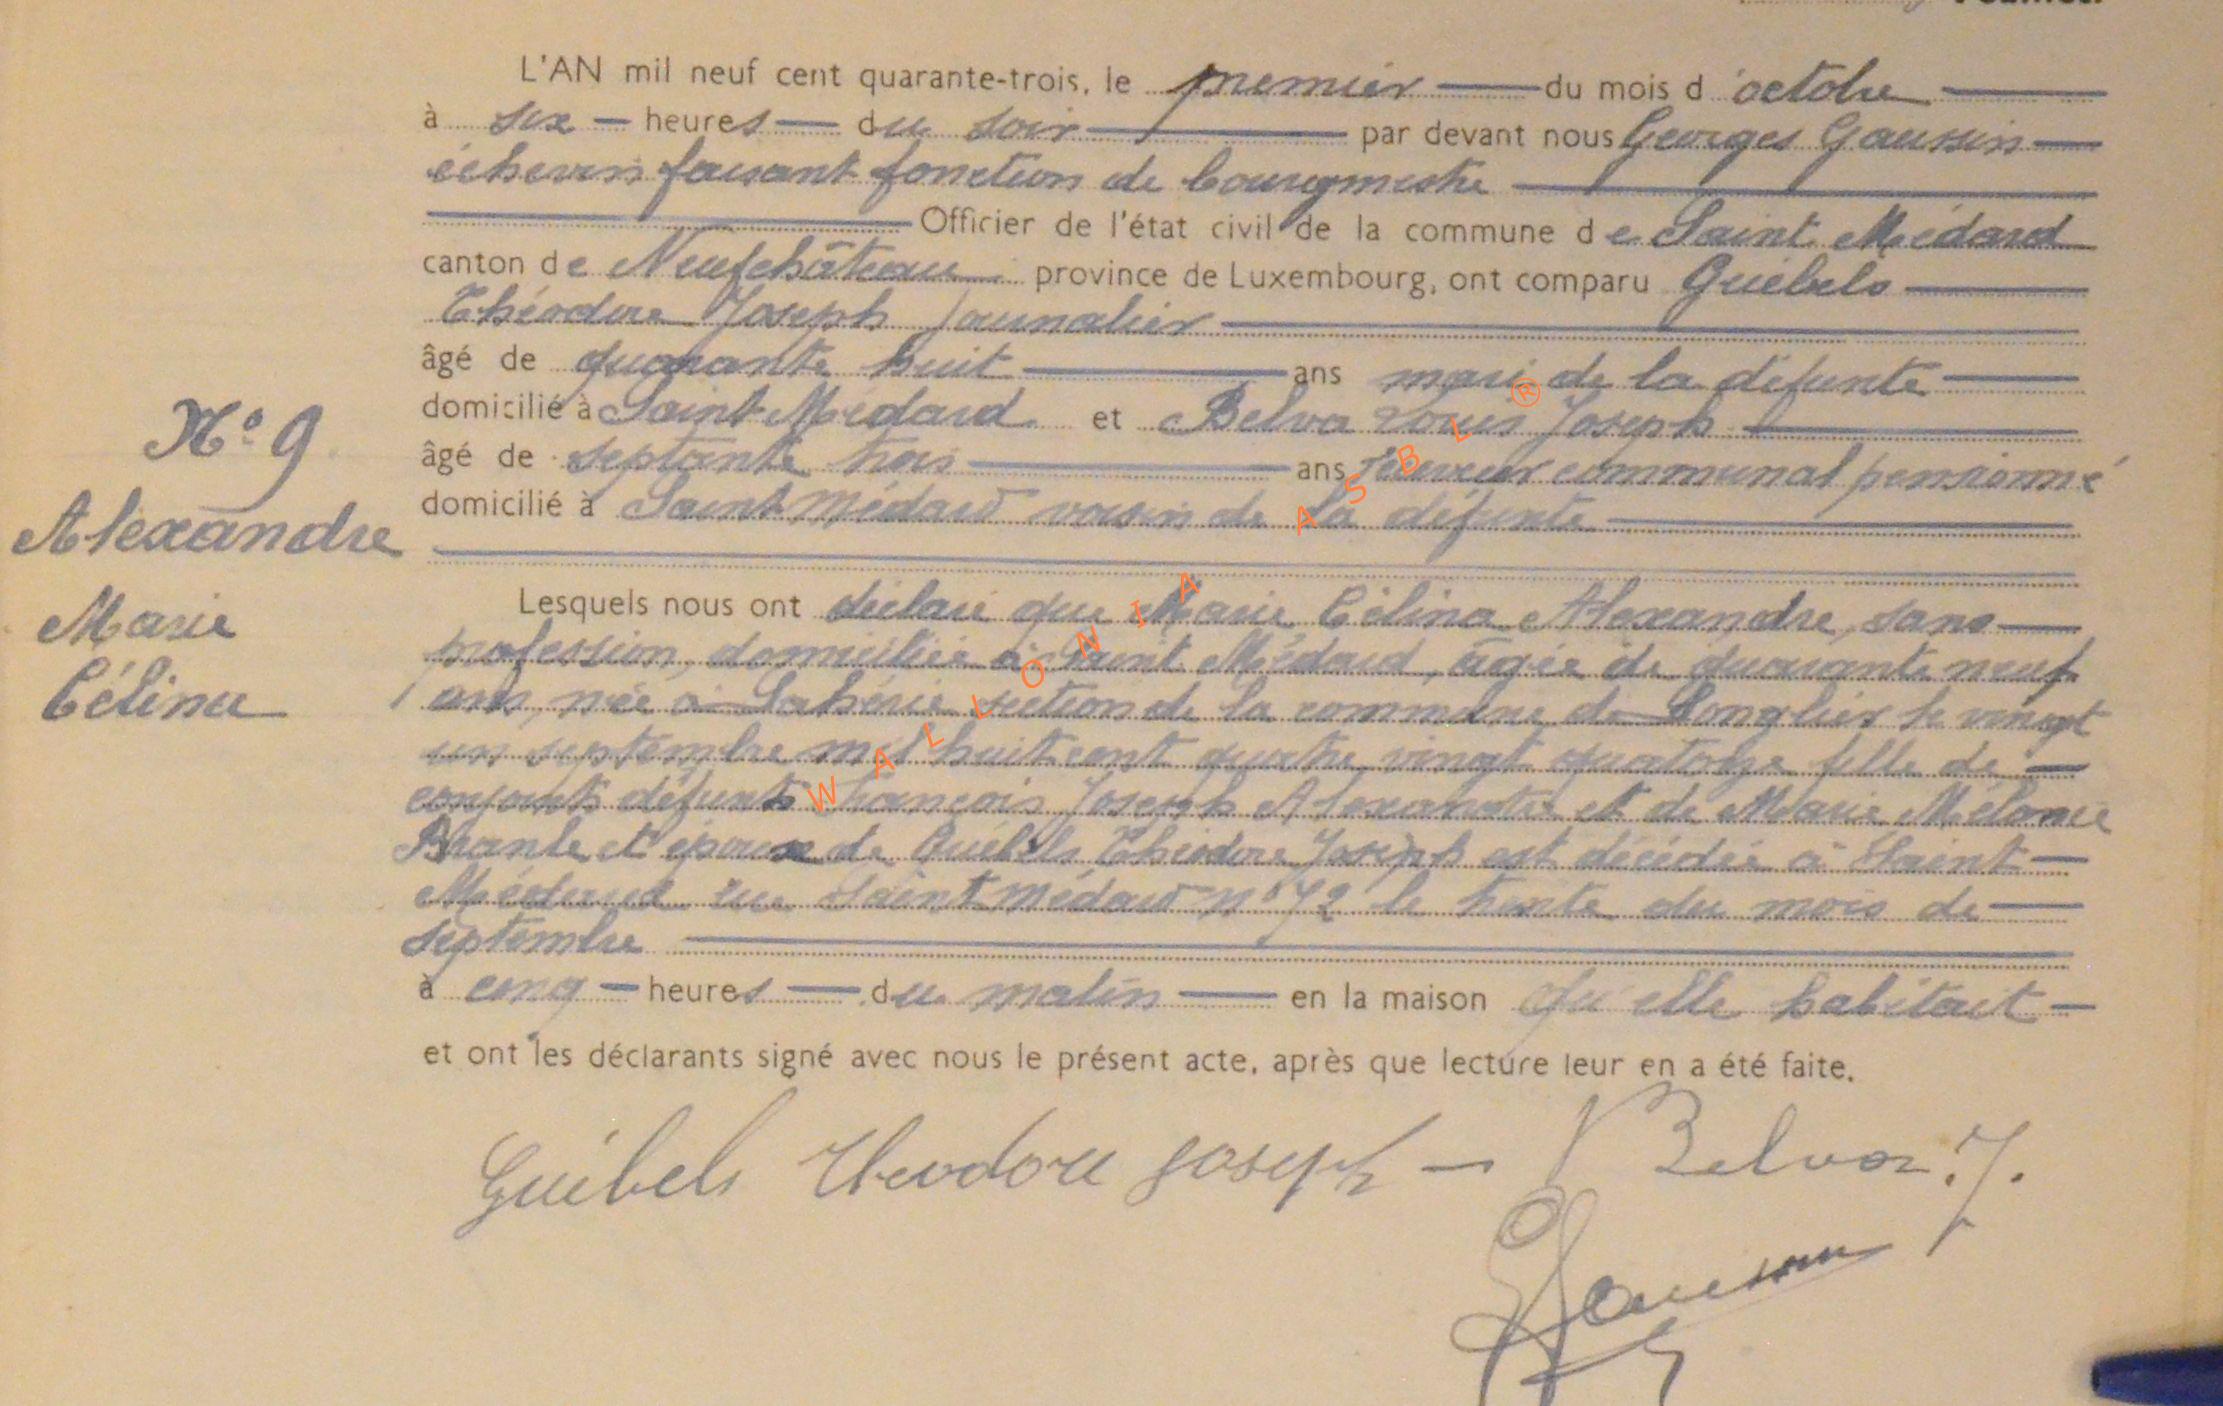 L'AN mil neuf cent quarante-trois, le premier du mois d'octobre
à six heures du soir par devant nous Georges Gaussin
échevin faisant fonction de bourgmestre
Officier de l'état civil de la commune de Saint Médard
canton de Neufchâteau province de Luxembourg, ont comparu Guébels
Théodore Joseph journalier
âgé de quarante huit ans mari de la défunte
N° 9
domicilié à Saint Médard et Belva Louis Joseph
âgé de septante trois ans receveur communal pensionné
domicilié à Saint Médard voisin de la défunte
Alexandre
Marie
Célina
Lesquels nous ont déclaré que Marie Célina Alexandre, sans
profession, domiciliée à Saint Médard, âgée de quarante neuf
ans, née à Lahérie section de la commune de Longlier le vingt
un septembre mil huit cent quatre vingt quatorze fille de
conjoints défunts François Joseph Alexandre et de Marie Mélanie
et épouse de Guébels Théodore Joseph est décédée à Saint
Médard rue Saint Médard n° 72 le trente du mois de
septembre
à cinq heures du matin en la maison qu'elle habitait
et ont les déclarants signé avec nous le présent acte, après que lecture leur en a été faite.
Guébels Théodore Joseph — Belva. J.
Gaussin
WALLONIA ASBL ®